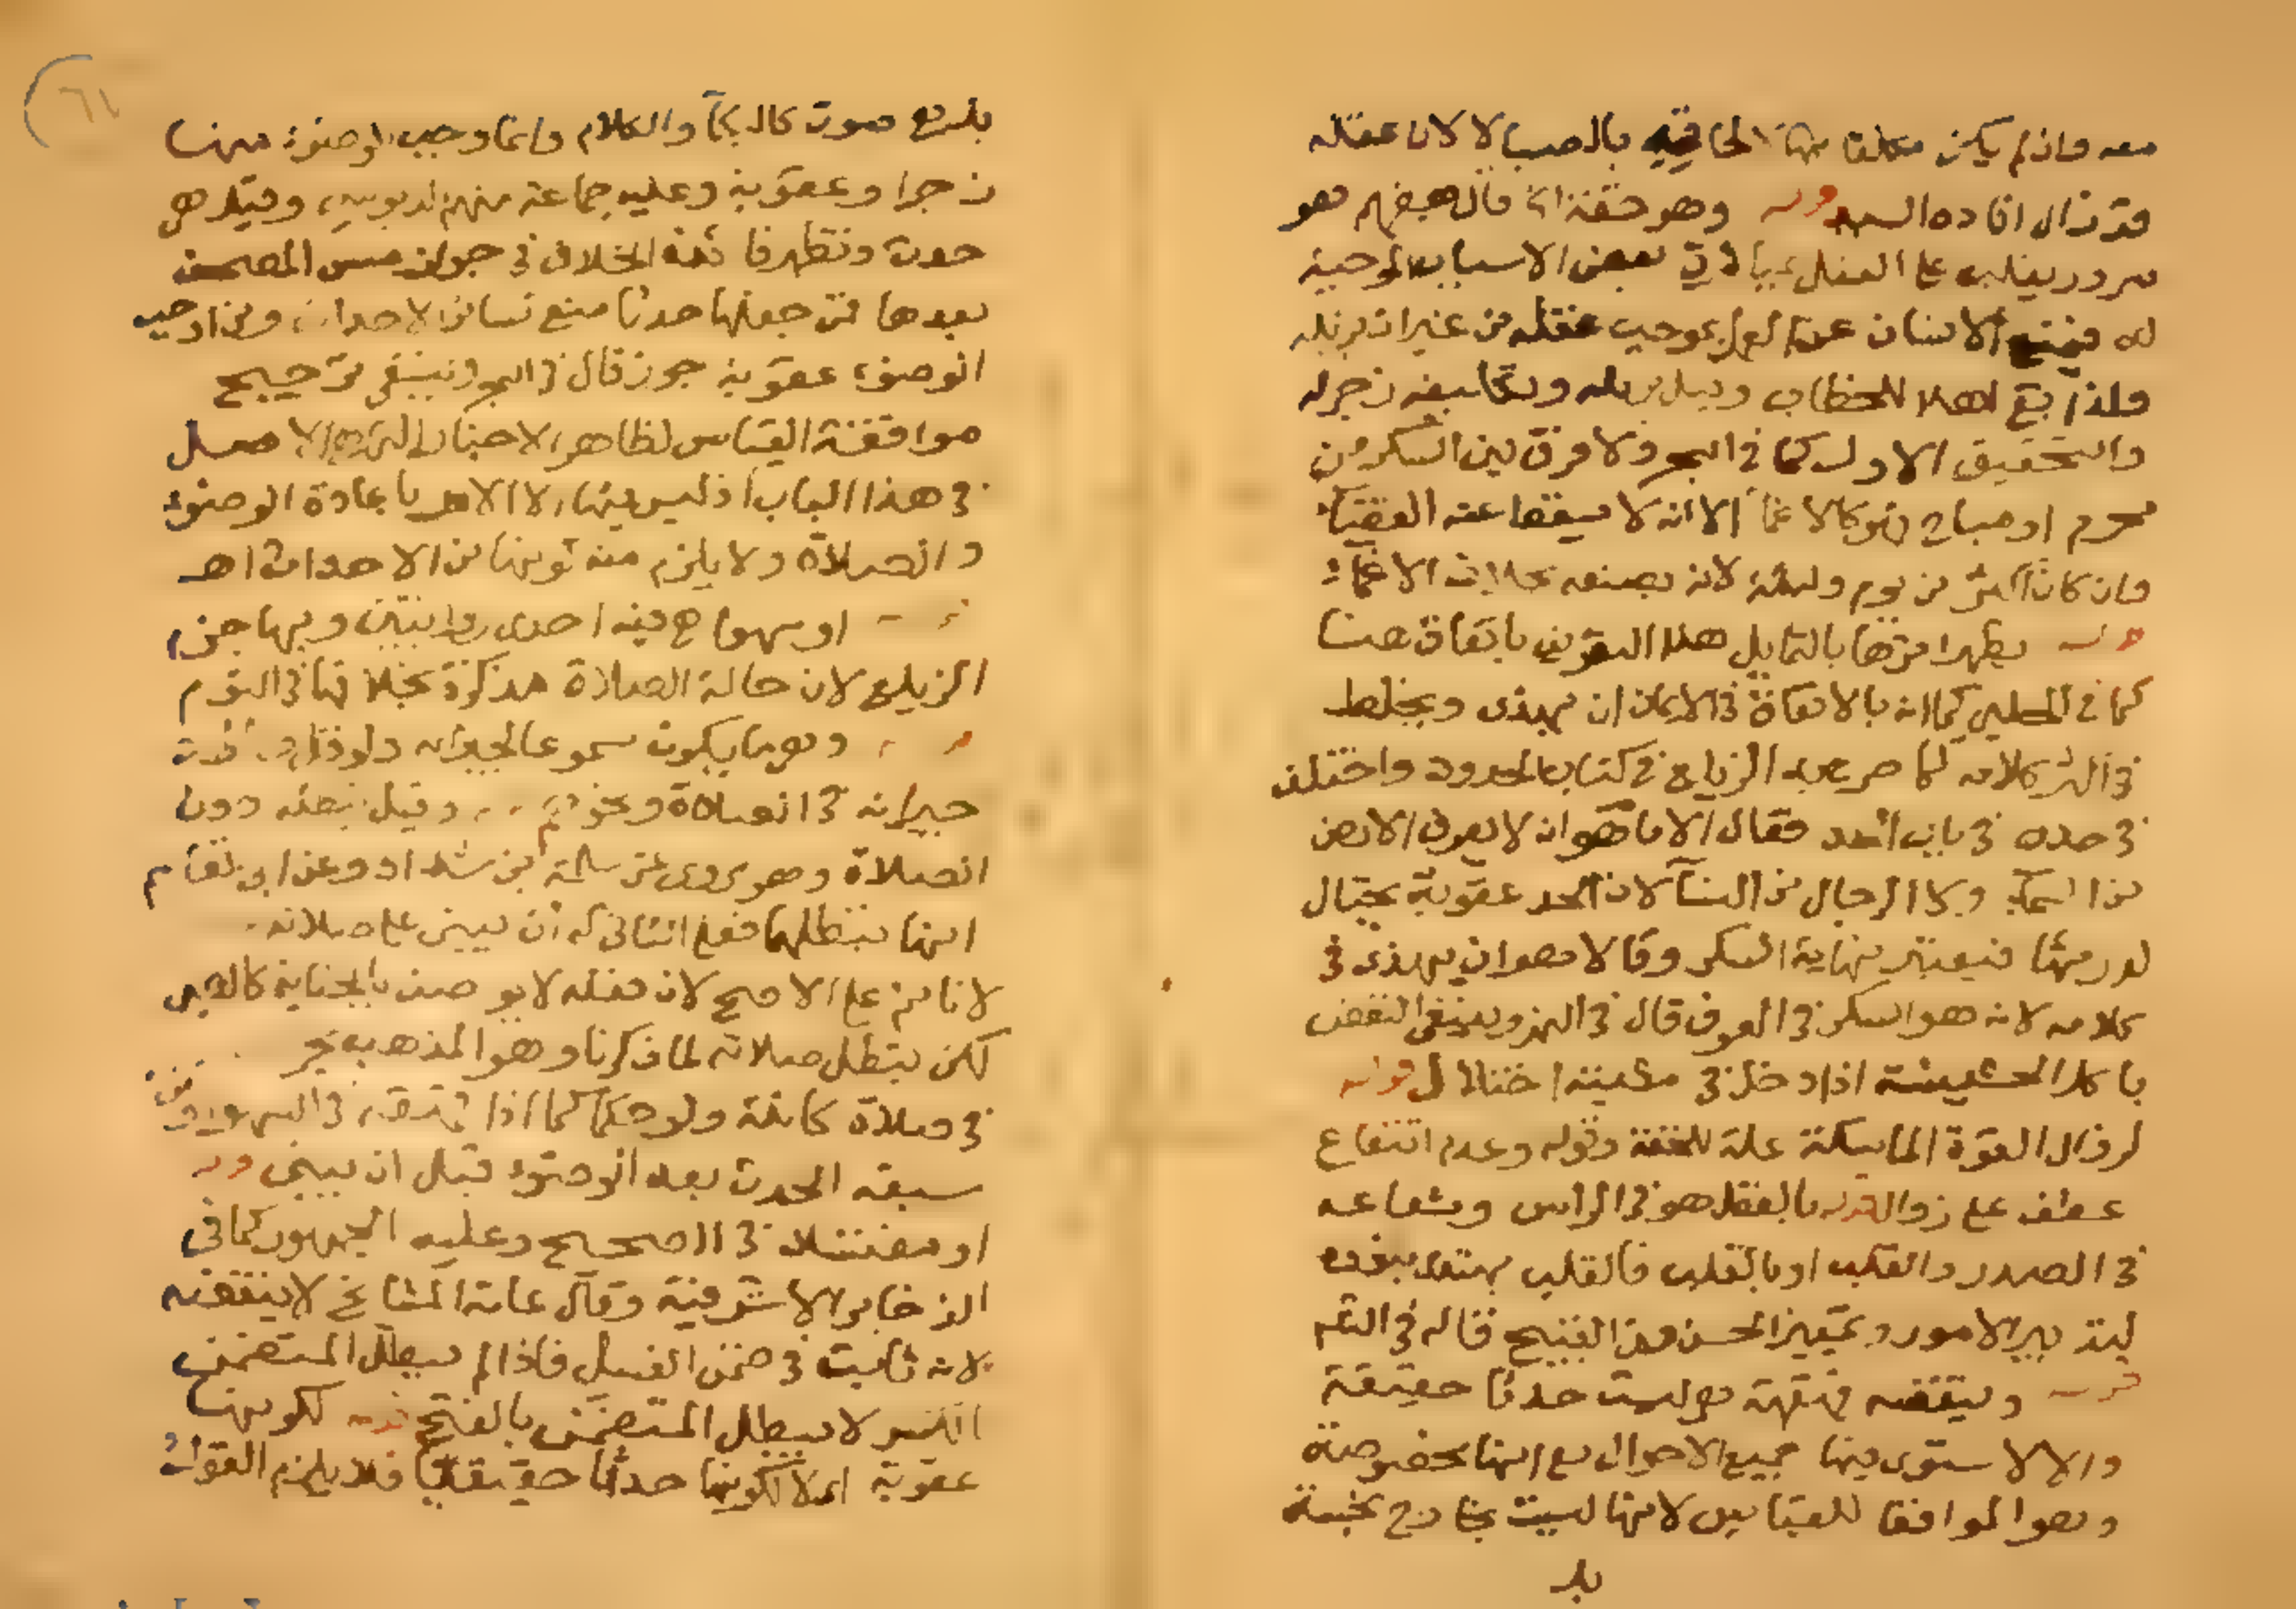 معه وان لم يكن مكلفا بها الحاقه بالصبا لا لان عقله
قد زال افاده السيد قوله وهو خفة الخ قال بعضهم هو
سرور يغلب على العقل بمباشرة بعض الاسباب الموجبة
له فيمنع الانسان عن العمل بموجب عقله من غير ان يزيله
ولذا بقي اهلا للخطاب وقيل يزيله وتكليفه زجر له
والتحقيق الاول كما في البحر ولا فرق بين السكر من
محرم او مباح وهو كالاغما الا انه لا يسقط عنه القضاء
وان كان اكثر من يوم وليلة لانه بصنعه بخلاف الاغماء
قوله يظهر اثرها بالتمايل هذا التعريف باتفاق هنا
كما في الحلبي كما انه بالاتفاق في الايمان ان يهذي ويخلط
في اكثر كلامه كما صرح به الزيلعي في كتاب الحدود واختلف
في حده في باب الحد فقال الامام هو ان لا يعرف الارض
من السماء ولا الرجال من النساء لان الحد عقوبة يحتال
لدرئها فيعتبر نهاية السكر وقالا هو ان يهذي في
كلامه لانه هو السكر في العرف قال في النهر وينبغي النقض
باكل الحشيشة اذا دخل في مشيته اختلال قوله
لزوال القوة الماسكة علة للخفة وقوله وعدم انتفاع
عطف على زوال قوله بالعقل هو في الراس وشعاعه
في الصدر والقلب او بالقلب فالقلب يهتدي بنوره
لتدبير الامور وتمييز الحسن من القبيح قاله في
قوله وينقضه قهقهة هي ليست حدثا حقيقة
والا لاستوى فيها جميع الاحوال مع انها مخصوصة
وهو الموافق للقياس لانها ليست بخارج نجسة
بل
٦٧
بل هي صوت كالبكاء والكلام وانما وجب الوضوء بها
زجرا وعقوبة وعليه جماعة منهم الدبوسي وقيل هي
حدث وتظهر فائدة الخلاف في جواز مس المصحف
بعدها فمن جعلها حدثا منع كسائر الاحداث ومن اوجب
الوضوء عقوبة جوز قال في البحر وينبغي ترجيح
موافقة القياس لظاهر الاخبار التي هي الاصل
في هذا الباب اذ ليس فيها الا الامر باعادة الوضوء
والصلاة ولا يلزم منه كونها من الاحداث اهـ
او سهوا هي فيه احدى روايتين وبها جزم
الزيلعي لان حالة الصلاة مذكرة بخلافها في النوم
وهي ما يكون مسموعا لجيرانه
جيرانه في الصلاة ونحو وقيل تبطله دون
الصلاة وهو مروي عن سلمة ابن شداد وعن ابي القاسم
انها تبطلهما فعلى الثاني له ان يبني على صلاته
لا نائم على الاصح لان فعله لا يوصف بالجناية كالصبي
لكن تبطل صلاته لما ذكرنا وهو المذهب بحر
في صلاة كاملة ولو حكما كما اذا قهقه في السهو او من
سبقه الحدث بعد الوضوء قبل ان يبني قوله
او مغتسلا في الصحيح وعليه الجمهور كما في
الذخاير الاشرفية وقال عامة المشايخ لا ينقضه
لانه ثابت في ضمن الغسل فاذا لم يبطل المتضمن
بالكسر لا يبطل المتضمن بالفتح قوله لكونها
عقوبة اي لا لكونها حدثا حقيقيا فلا يلزم القول